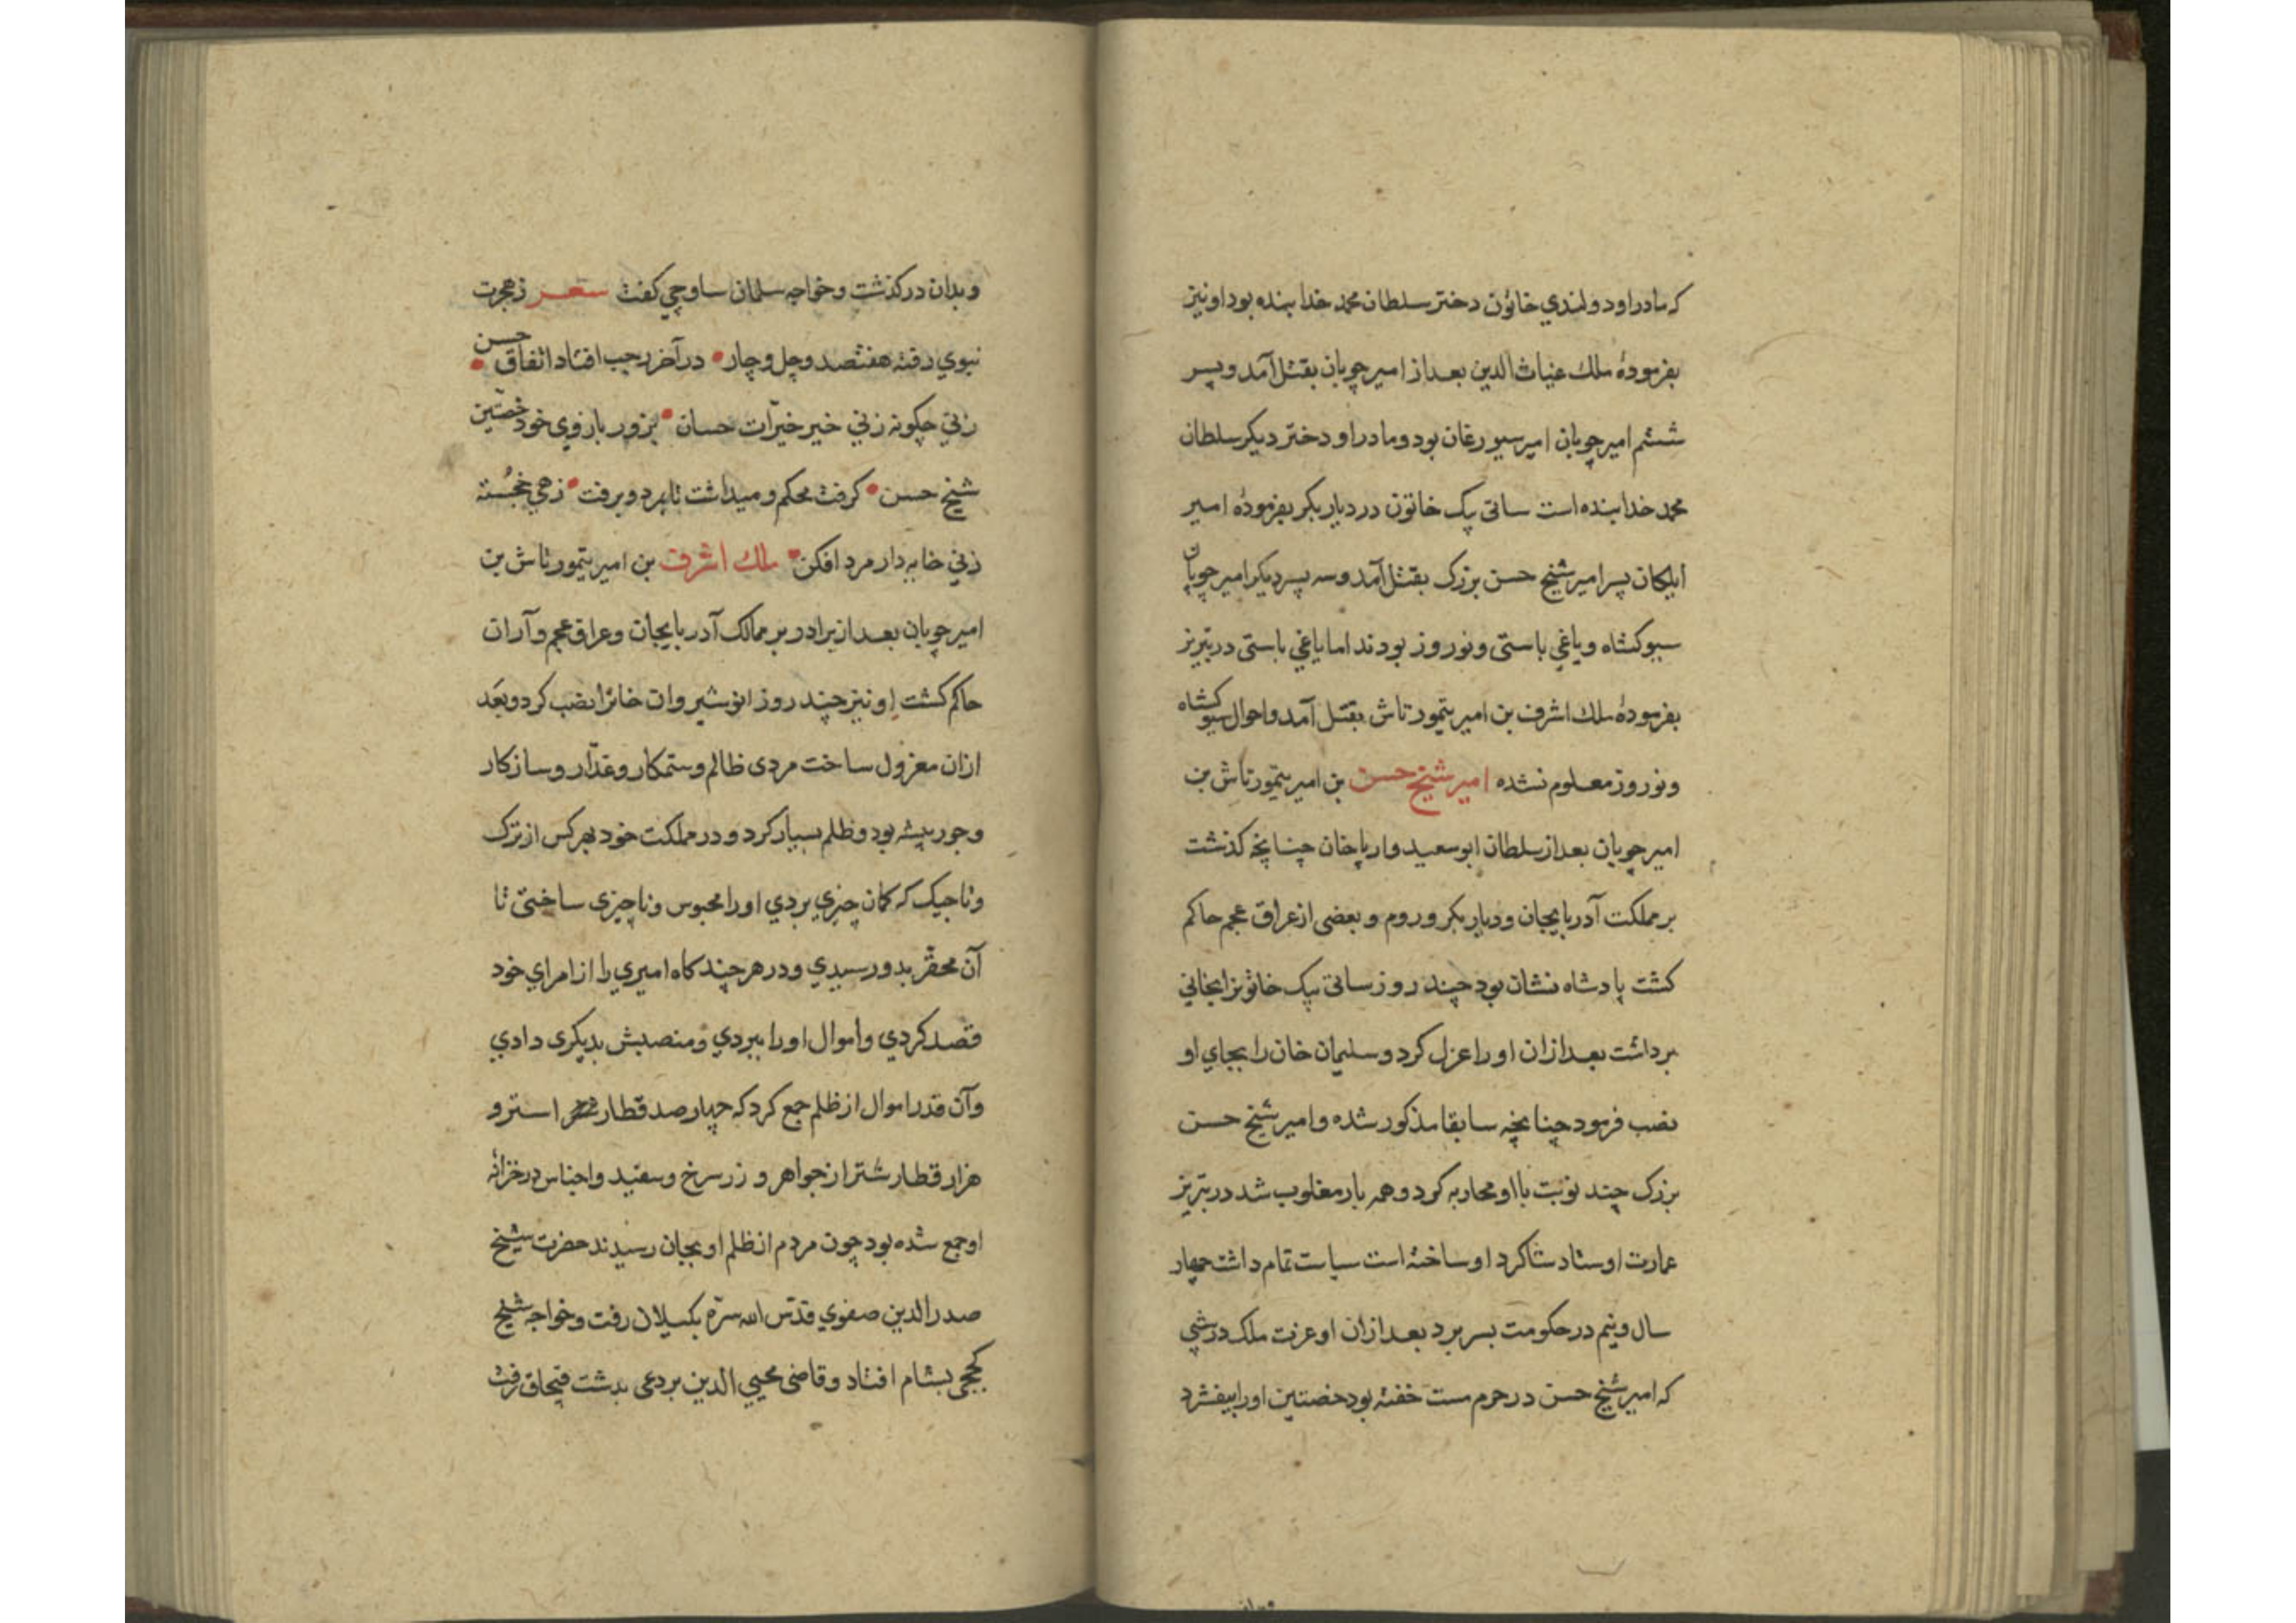 که مادر او دولندي خاتون دختر سلطان محمد خدابنده بود او نیز
بفرمودهٔ ملك غیاث الدین بعد از امیر چوپان بقتل آمد و پسر
ششم امیر چوپان امیر سیورغان بود و مادر او دختر دیکر سلطان
محمد خدابنده است ساتی بیک خاتون در دیار بکر بفرمودهٔ امیر
ایلکان پسر امیر شیخ حسن بزرک بقتل آمد و سه پسر دیکر امیر چوپان
سیوکشاه و یاغي باستی و نوروز بودند اما یاغي باستی در تبریز
بفرمودهٔ ملك اشرف بن امیر تیمورتاش بقتل آمد و احوال سیوکشاه
و نوروز معلوم نشده امیر شیخ حسن بن امیر تیمورتاش بن
امیر چوپان بعد از سلطان ابو سعید و ارپا خان چنانچه کذشت
بر مملکت آدربایجان و دیار بکر و روم و بعضی از عراق عجم حاکم
کشت پادشاه نشان بود چند روز ساتی بیک خاتونرا بخاني
برداشت بعد از ان او را عزل کرد و سلیمان خان را بجاي او
نصب فرمود چنانچه سابقا مذکور شده و امیر شیخ حسن
بزرک چند نوبت با او محاربه کرد و همه بار مغلوب شد در تبریز
عمارت اوستاد شاکرد او ساخته است سیاست تمام داشت چهار
سال و نیم در حکومت بسر برد بعد از ان او عزت ملک در شبي
که امیر شیخ حسن در حرم مست خفته بود خصتین او را بیفشرد
و بدان در کذشت و خواجه سلمان ساوجي کفت شعر ز هجرت
نبوي رفته هفتصد و چل و چار در آخر رجب افتاد اتفاق حسن
زني چکونه زني خیر خیّرات حسان بزور بازوی خود خصتین
شیخ حسن کرفت محکم و میداشت تا بمرد و برفت زهي خجسته
زني خایه دار مرد افکن ملك اشرف بن امیر تیمورتاش بن
امیر چوپان بعد از برادر بر ممالک آدربایجان و عراق عجم و آران
حاکم کشت او نیز چند روز انوشیروان خانرا نصب کرد و بعد
ازان معزول ساخت مردی ظالم و ستمکار و غدّار و سازکار
و جور پیشه بود و ظلم بسیار کرد و در مملکت خود بهر کس از ترک
و تاجیک که کمان چیزي بردي او را محبوس و ناچیزی ساختی تا
آن محقر بدو رسیدي و در هر چند کاه امیري را از امراي خود
قصد کردي و اموال او را ببردي و منصبش بدیکری دادي
و آن قدر اموال از ظلم جمع کرد که چهار صد قطار استر و
هزار قطار شتر از جواهر و زر سرخ و سفید و اجناس در خزانهٔ
او جمع شده بود چون مردم از ظلم او بجان رسیدند حضرت شیخ
صدر الدین صفوي قدّس الله سرّه بکیلان رفت و خواجه شیخ
کججی بشام افتاد و قاضی محیي الدین بردعی بدشت قبچاق رفت